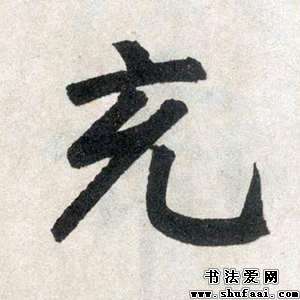 充
书法爱网
www.shufaai.com